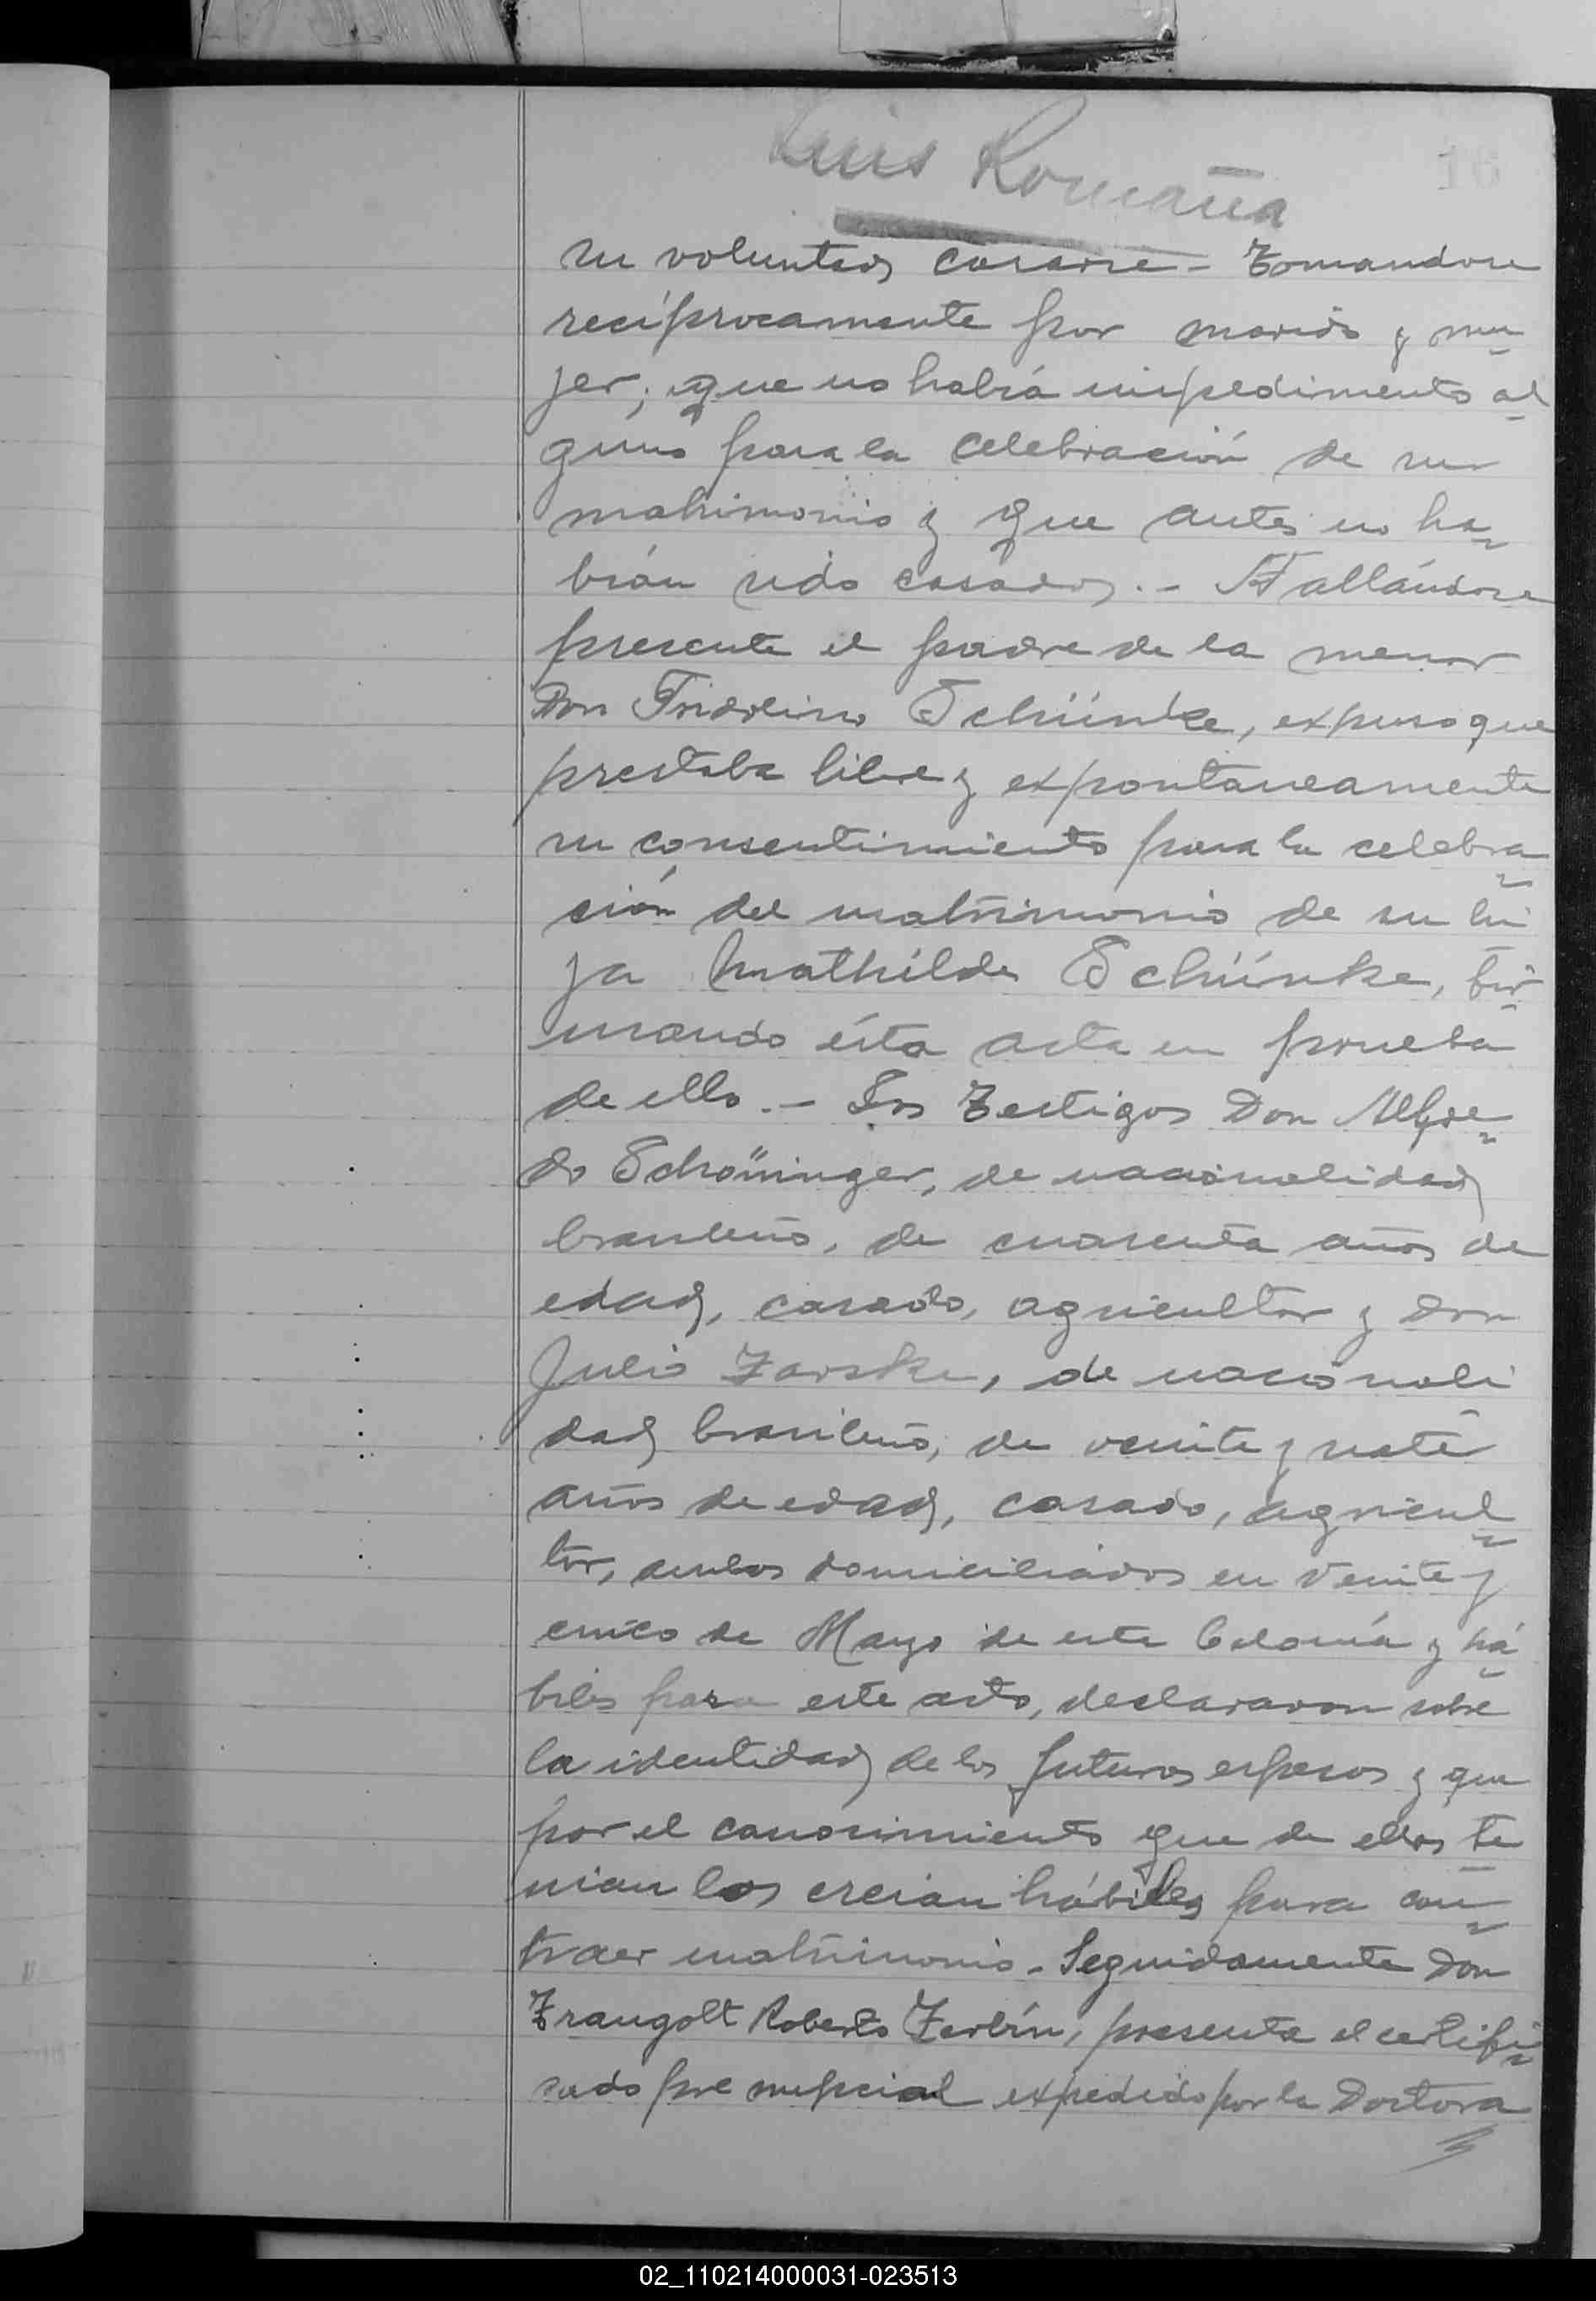 Luis Romaña
16
su voluntad casarse - Tomandose
recíprocamente por marido y mu
jer; que no había impedimento al
guno para la celebración de su
matrimonio y que antes no ha
bían sido casados. - Hallándose
presente el padre de la menor
Don Fridolino Schünke, expuso que
prestaba libre y expontaneamente
su consentimiento para la celebra
ción del matrimonio de su hi
ja Mathilde Schünke, fir
mando ésta acta en prueba
de ello. - Los Testigos Don Alfre
do Schöninger, de nacionalidad
brasileño, de cuarenta años de
edad, casado, agricultor y Don
Julio Zarske, de nacionali
dad brasileño, de veinte y siete
años de edad, casado, agricul
tor, ambos domiciliados en Veinte y
cinco de Mayo de esta Colonia y há
biles para este acto, declararon sobre
la identidad de los futuros esposos y que
por el conocimiento que de ellos te
nian los creian hábiles para con
traer matrimonio. Seguidamente Don
Traugolt Roberto Zerbin, presenta el certifi
cado pre nupcial expedido por la Doctora
02_110214000031-023513